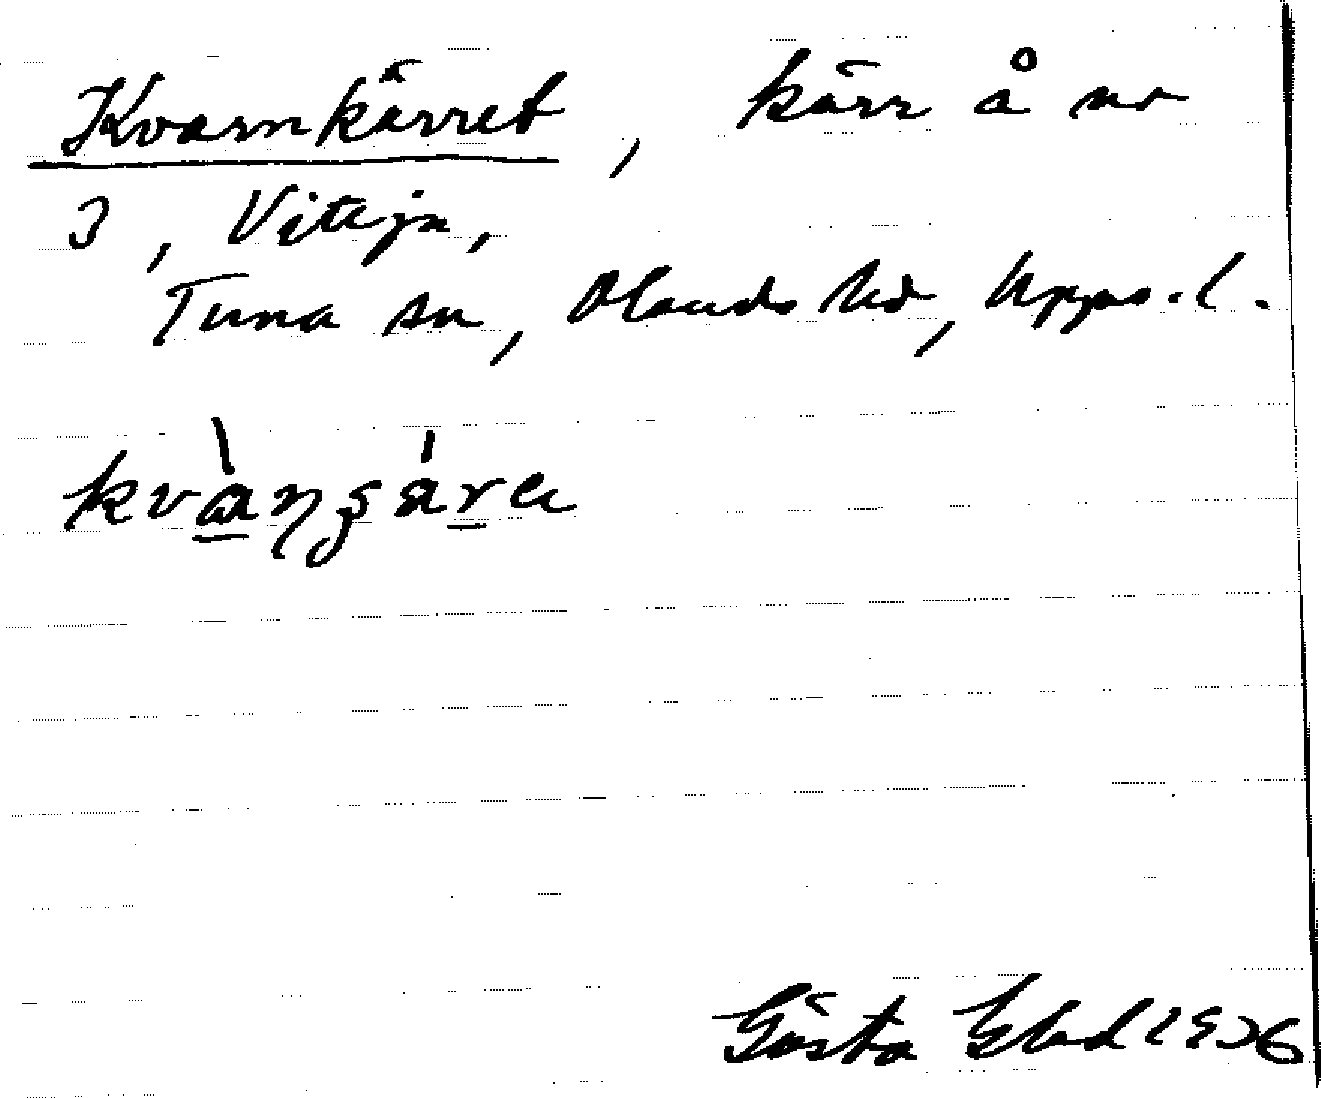 Kvarnkärret, kärr å nr
3, Viteja,
Tuna sn, Olands hd, Upps. l.
Gösta Ekd 1936